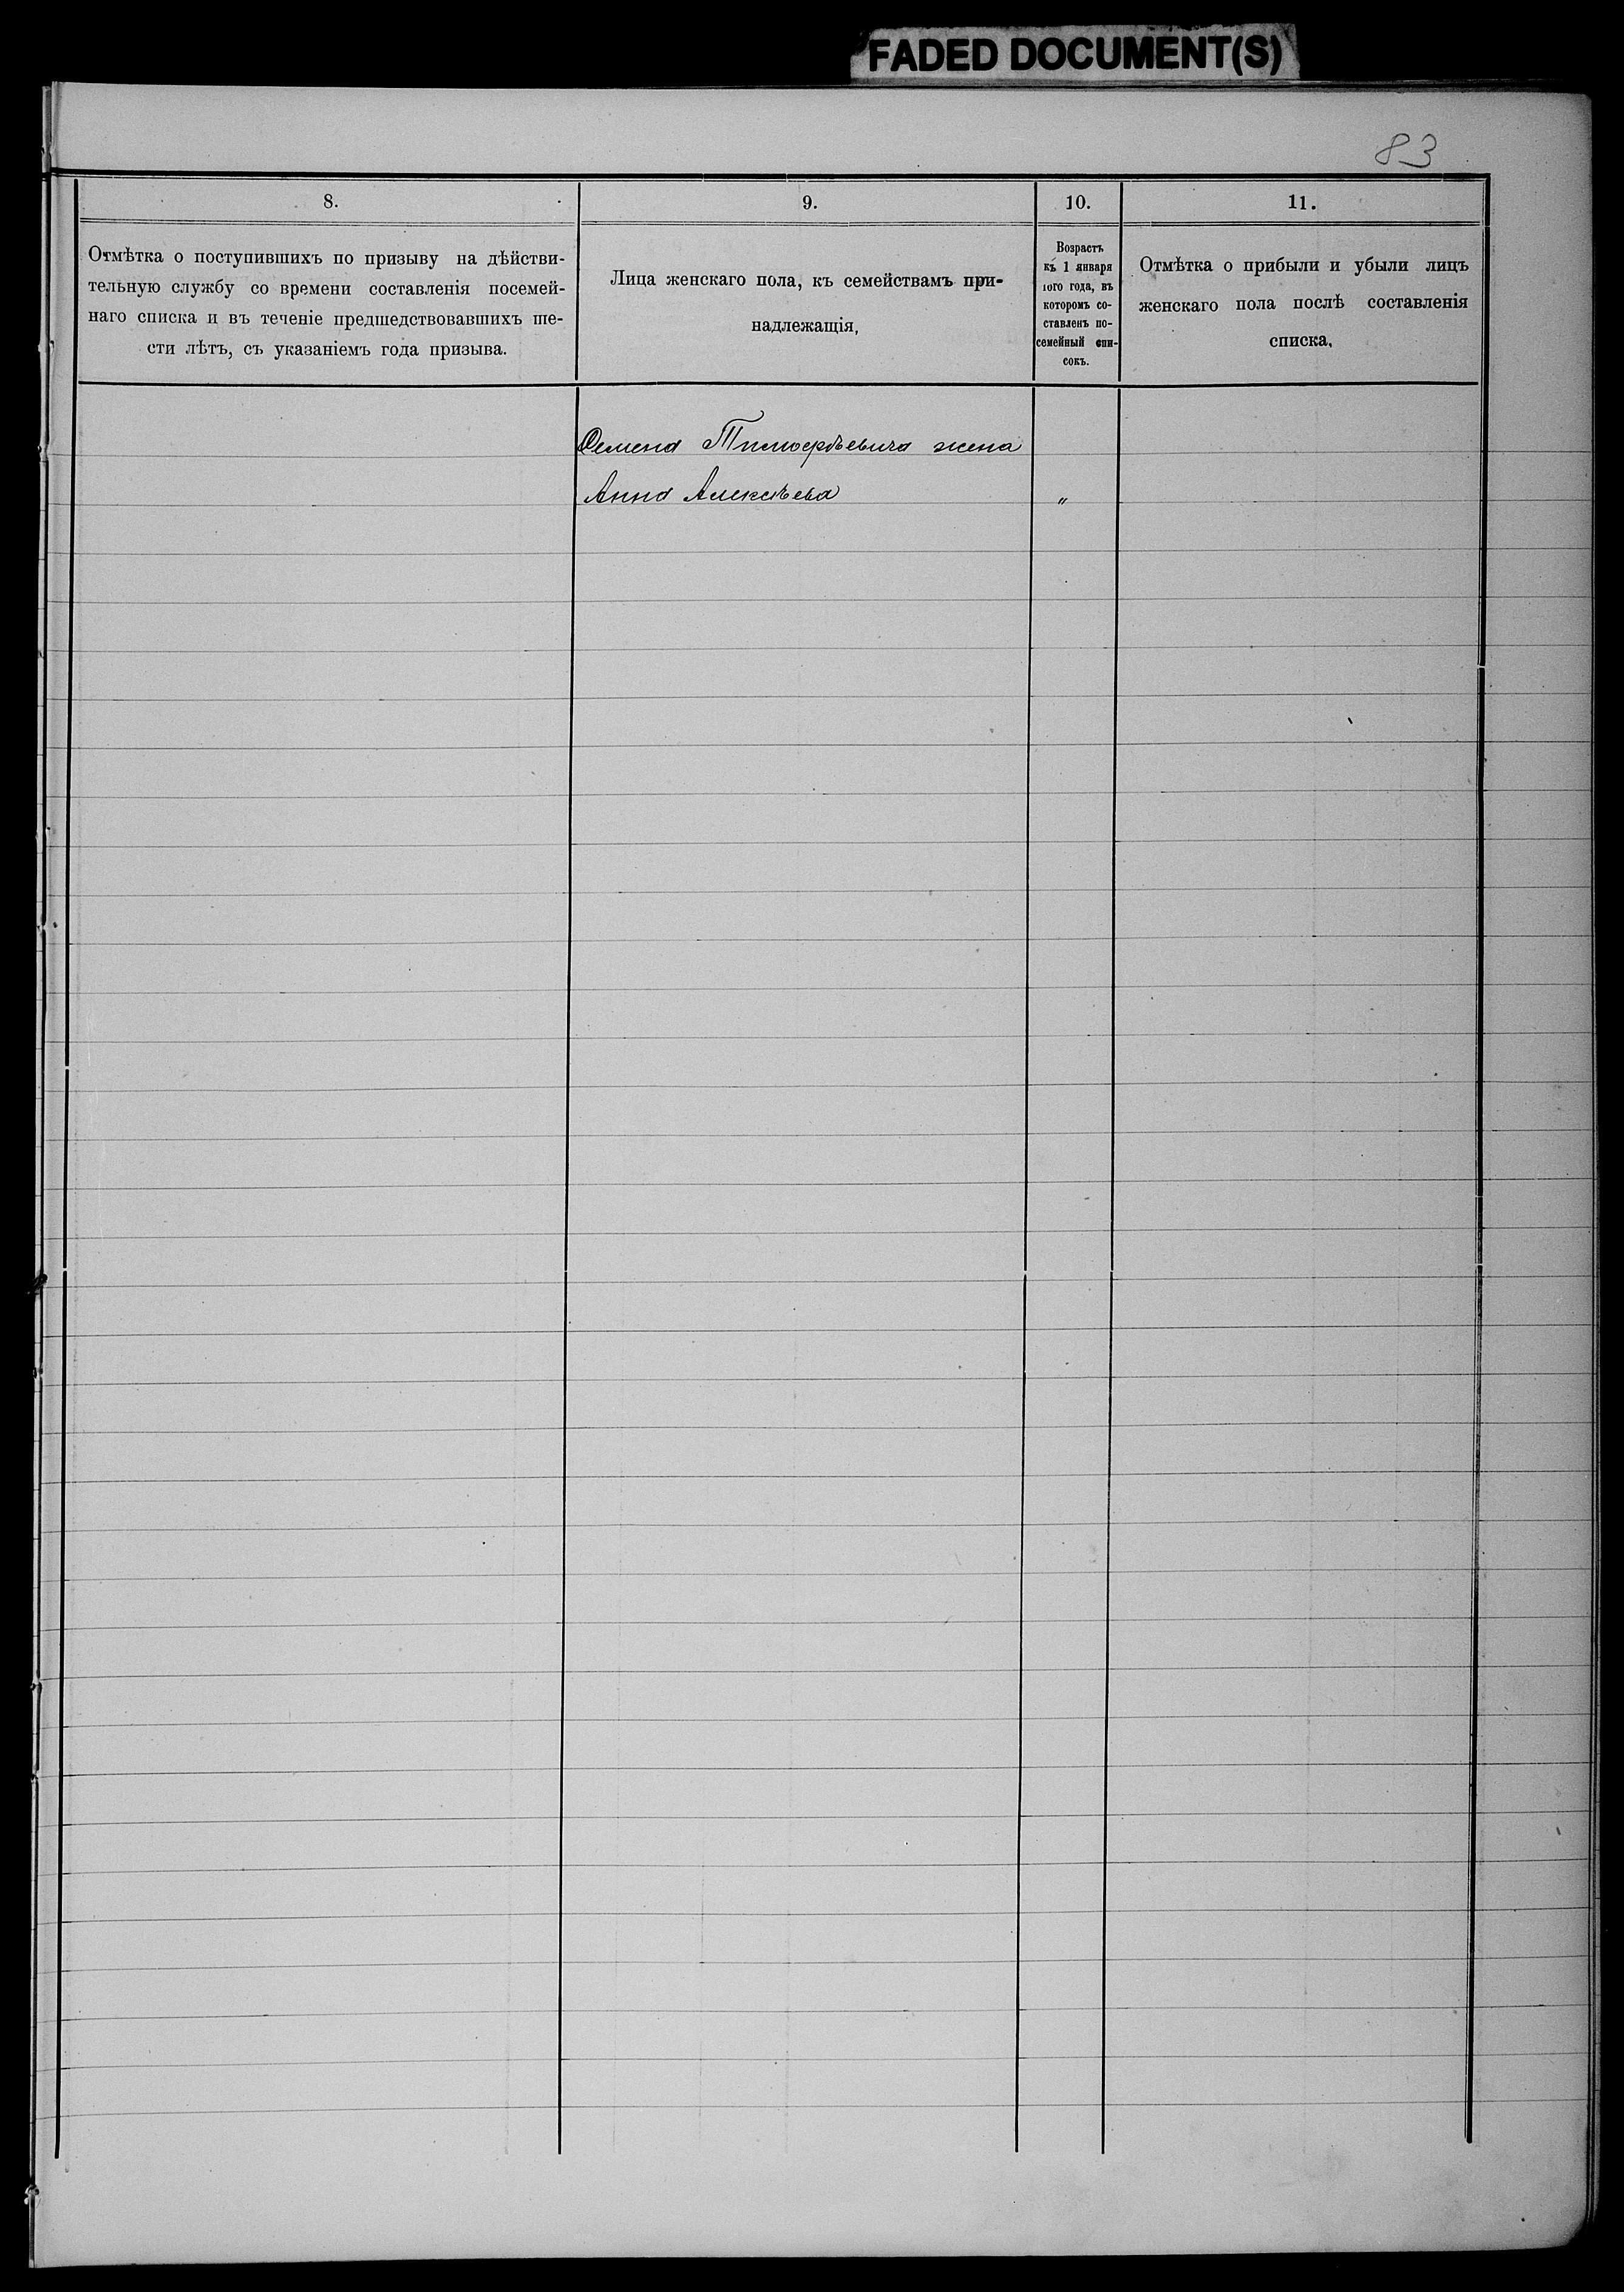 FADED DOCUMENT(S)
83
8.
9.
10.
11.
Отмѣтка о поступившихъ по призыву на дѣйстви-
тельную службу со времени составленія посемей-
наго списка и въ теченіе предшедствовавшихъ ше-
сти лѣтъ, съ указаніемъ года призыва.
Лица женскаго пола, къ семействамъ при-
надлежащія,
Возрастъ
къ 1 января
того года, въ
которомъ со-
ставленъ по-
семейный спи-
сокъ.
Отмѣтка о прибыли и убыли лицъ
женскаго пола послѣ составленія
списка,
Семена Тимофѣевича жена
Анна Алексѣева "